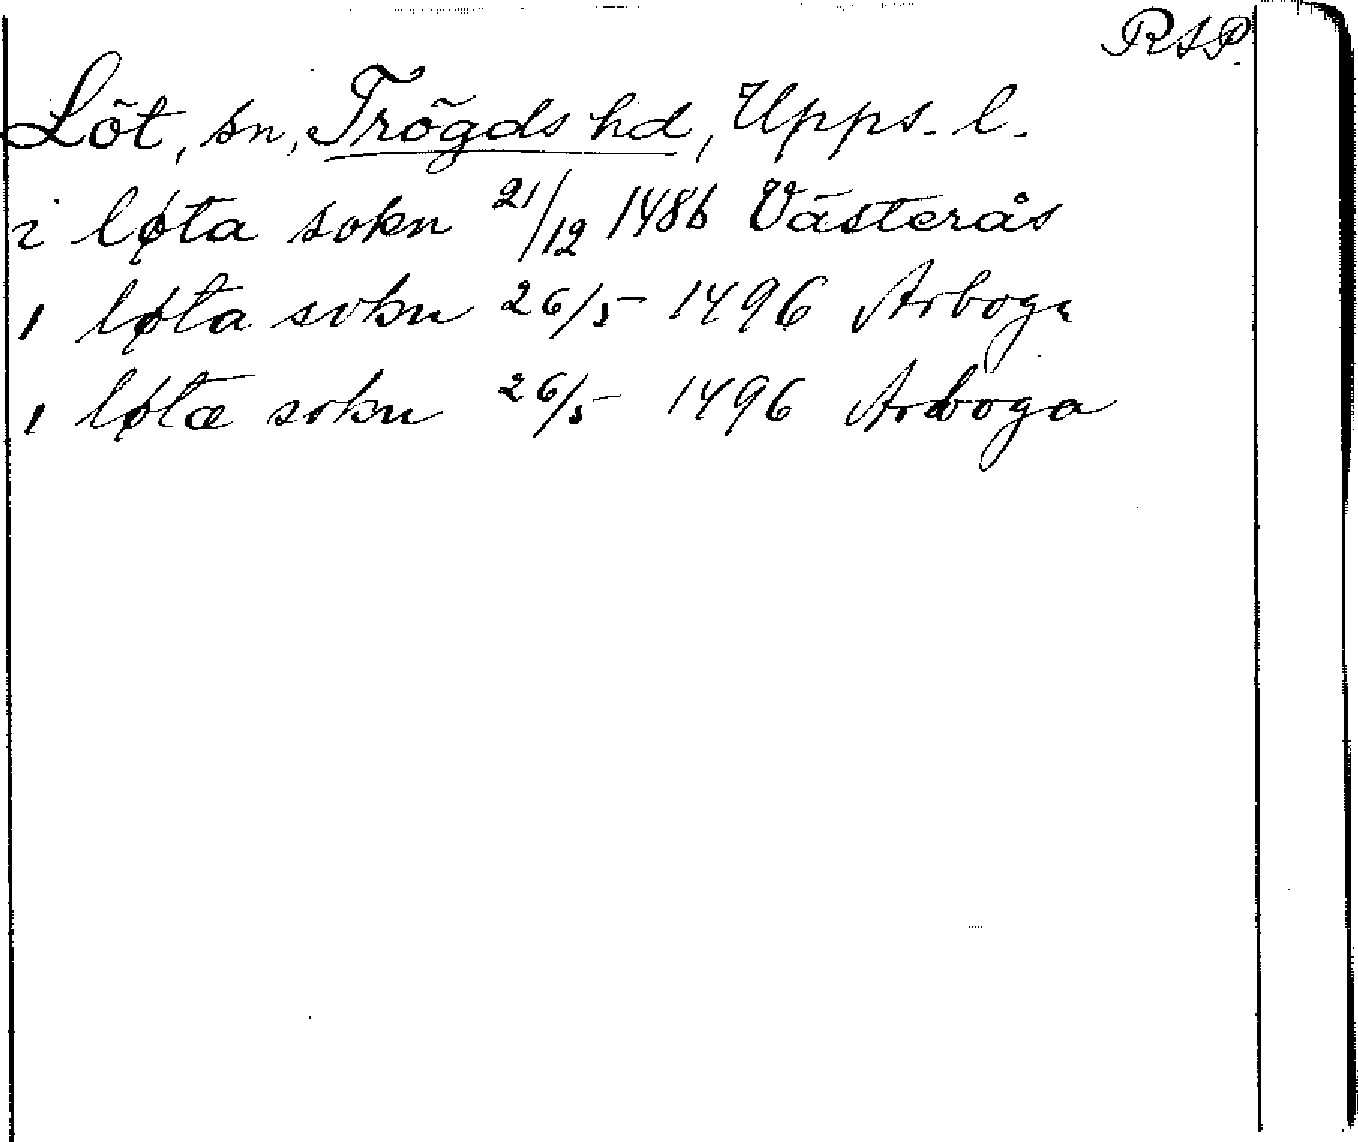 RSP.
Löt, sn, Trögds hd, Upps. l.
i løta sokn 21/12 1486 Västerås
i løta sokn 26/5 1496 Arboga
i løtæ sokn 26/5 1496 Arboga